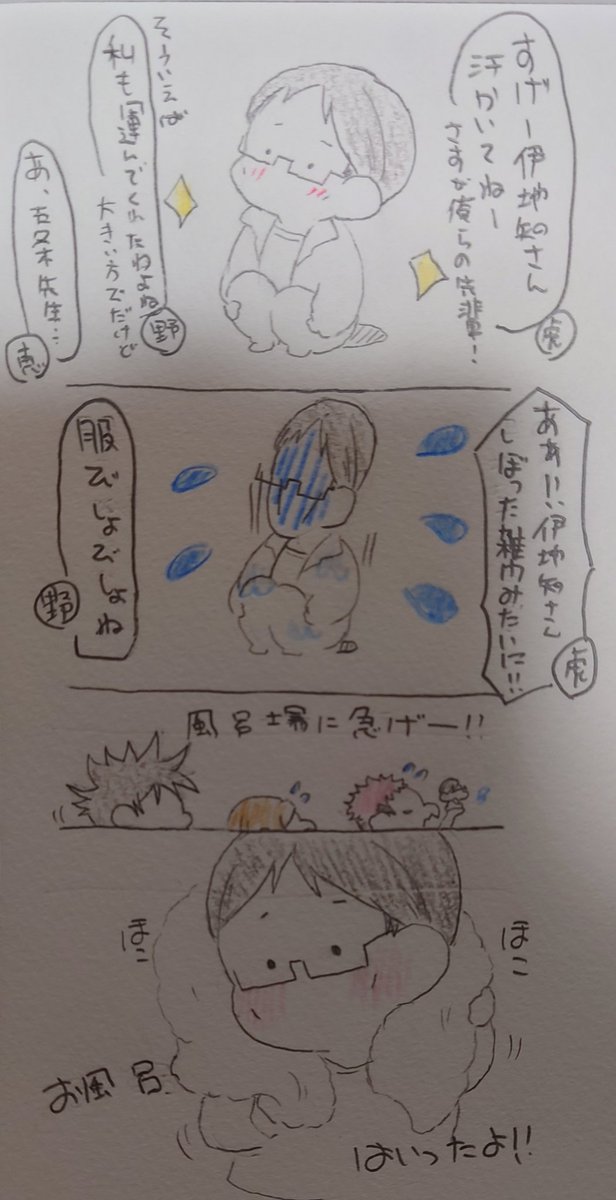 すげー伊地知さん
汗かいてねー
さすが俺らの先輩!
虎
そういえば
私も「運んでくれたわよね
大きい方でだけど
野
あ、五条先生…
恵
ああいい伊地知さん
しぼった雑巾みたいに!!
虎
服びしょびしょね
野
風呂場に急げー!!
ほこ
ほこ
お風呂
はいったよ!!